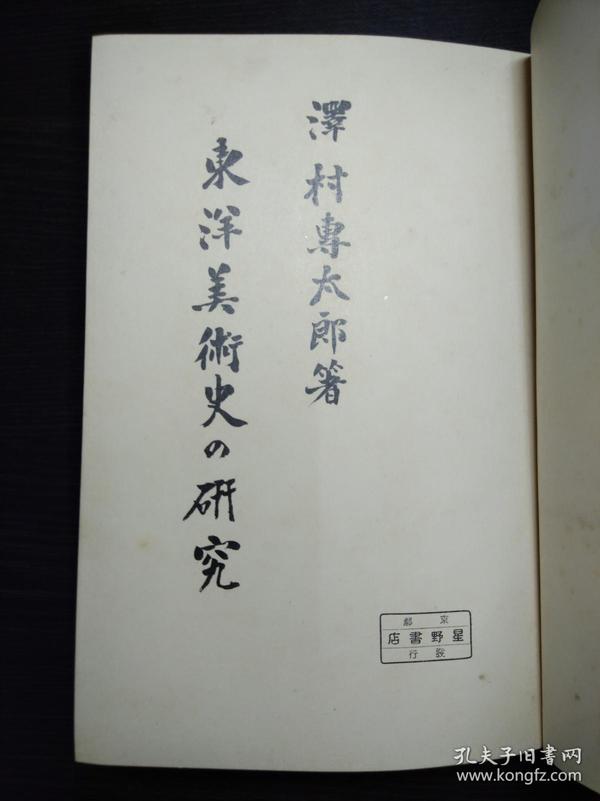 澤村專太郎箸
東洋美術史の研究
京都
星野書店
發行
孔夫子旧书网
www.kongfz.com